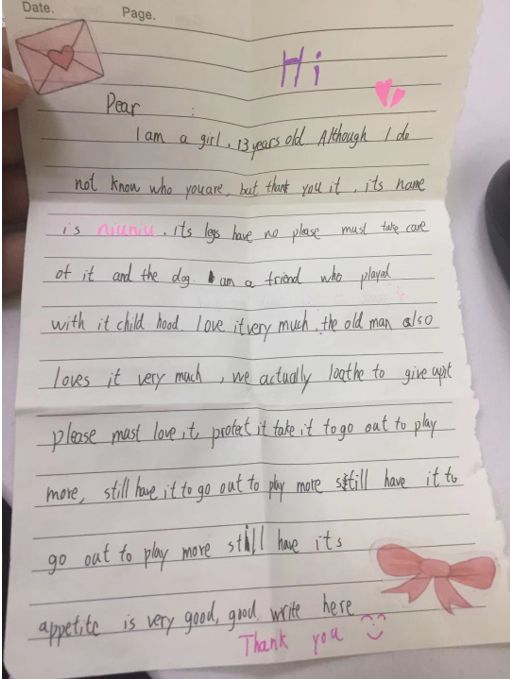 Date. Page.
Hi
Pear :
I am a girl, 13 years old Although I do
not know who youare, but thank you it, its name
is niuniu. its legs have no please must take care
of it and the dog I am a friend who played
with it child hood. love it very much, the old man also
loves it very much, we actually loathe to give
please must love it, protect it take it to go out to play
more, still have it to go out to play more still have it to
go out to play more still have its
appetite is very good, good. write here
Thank you